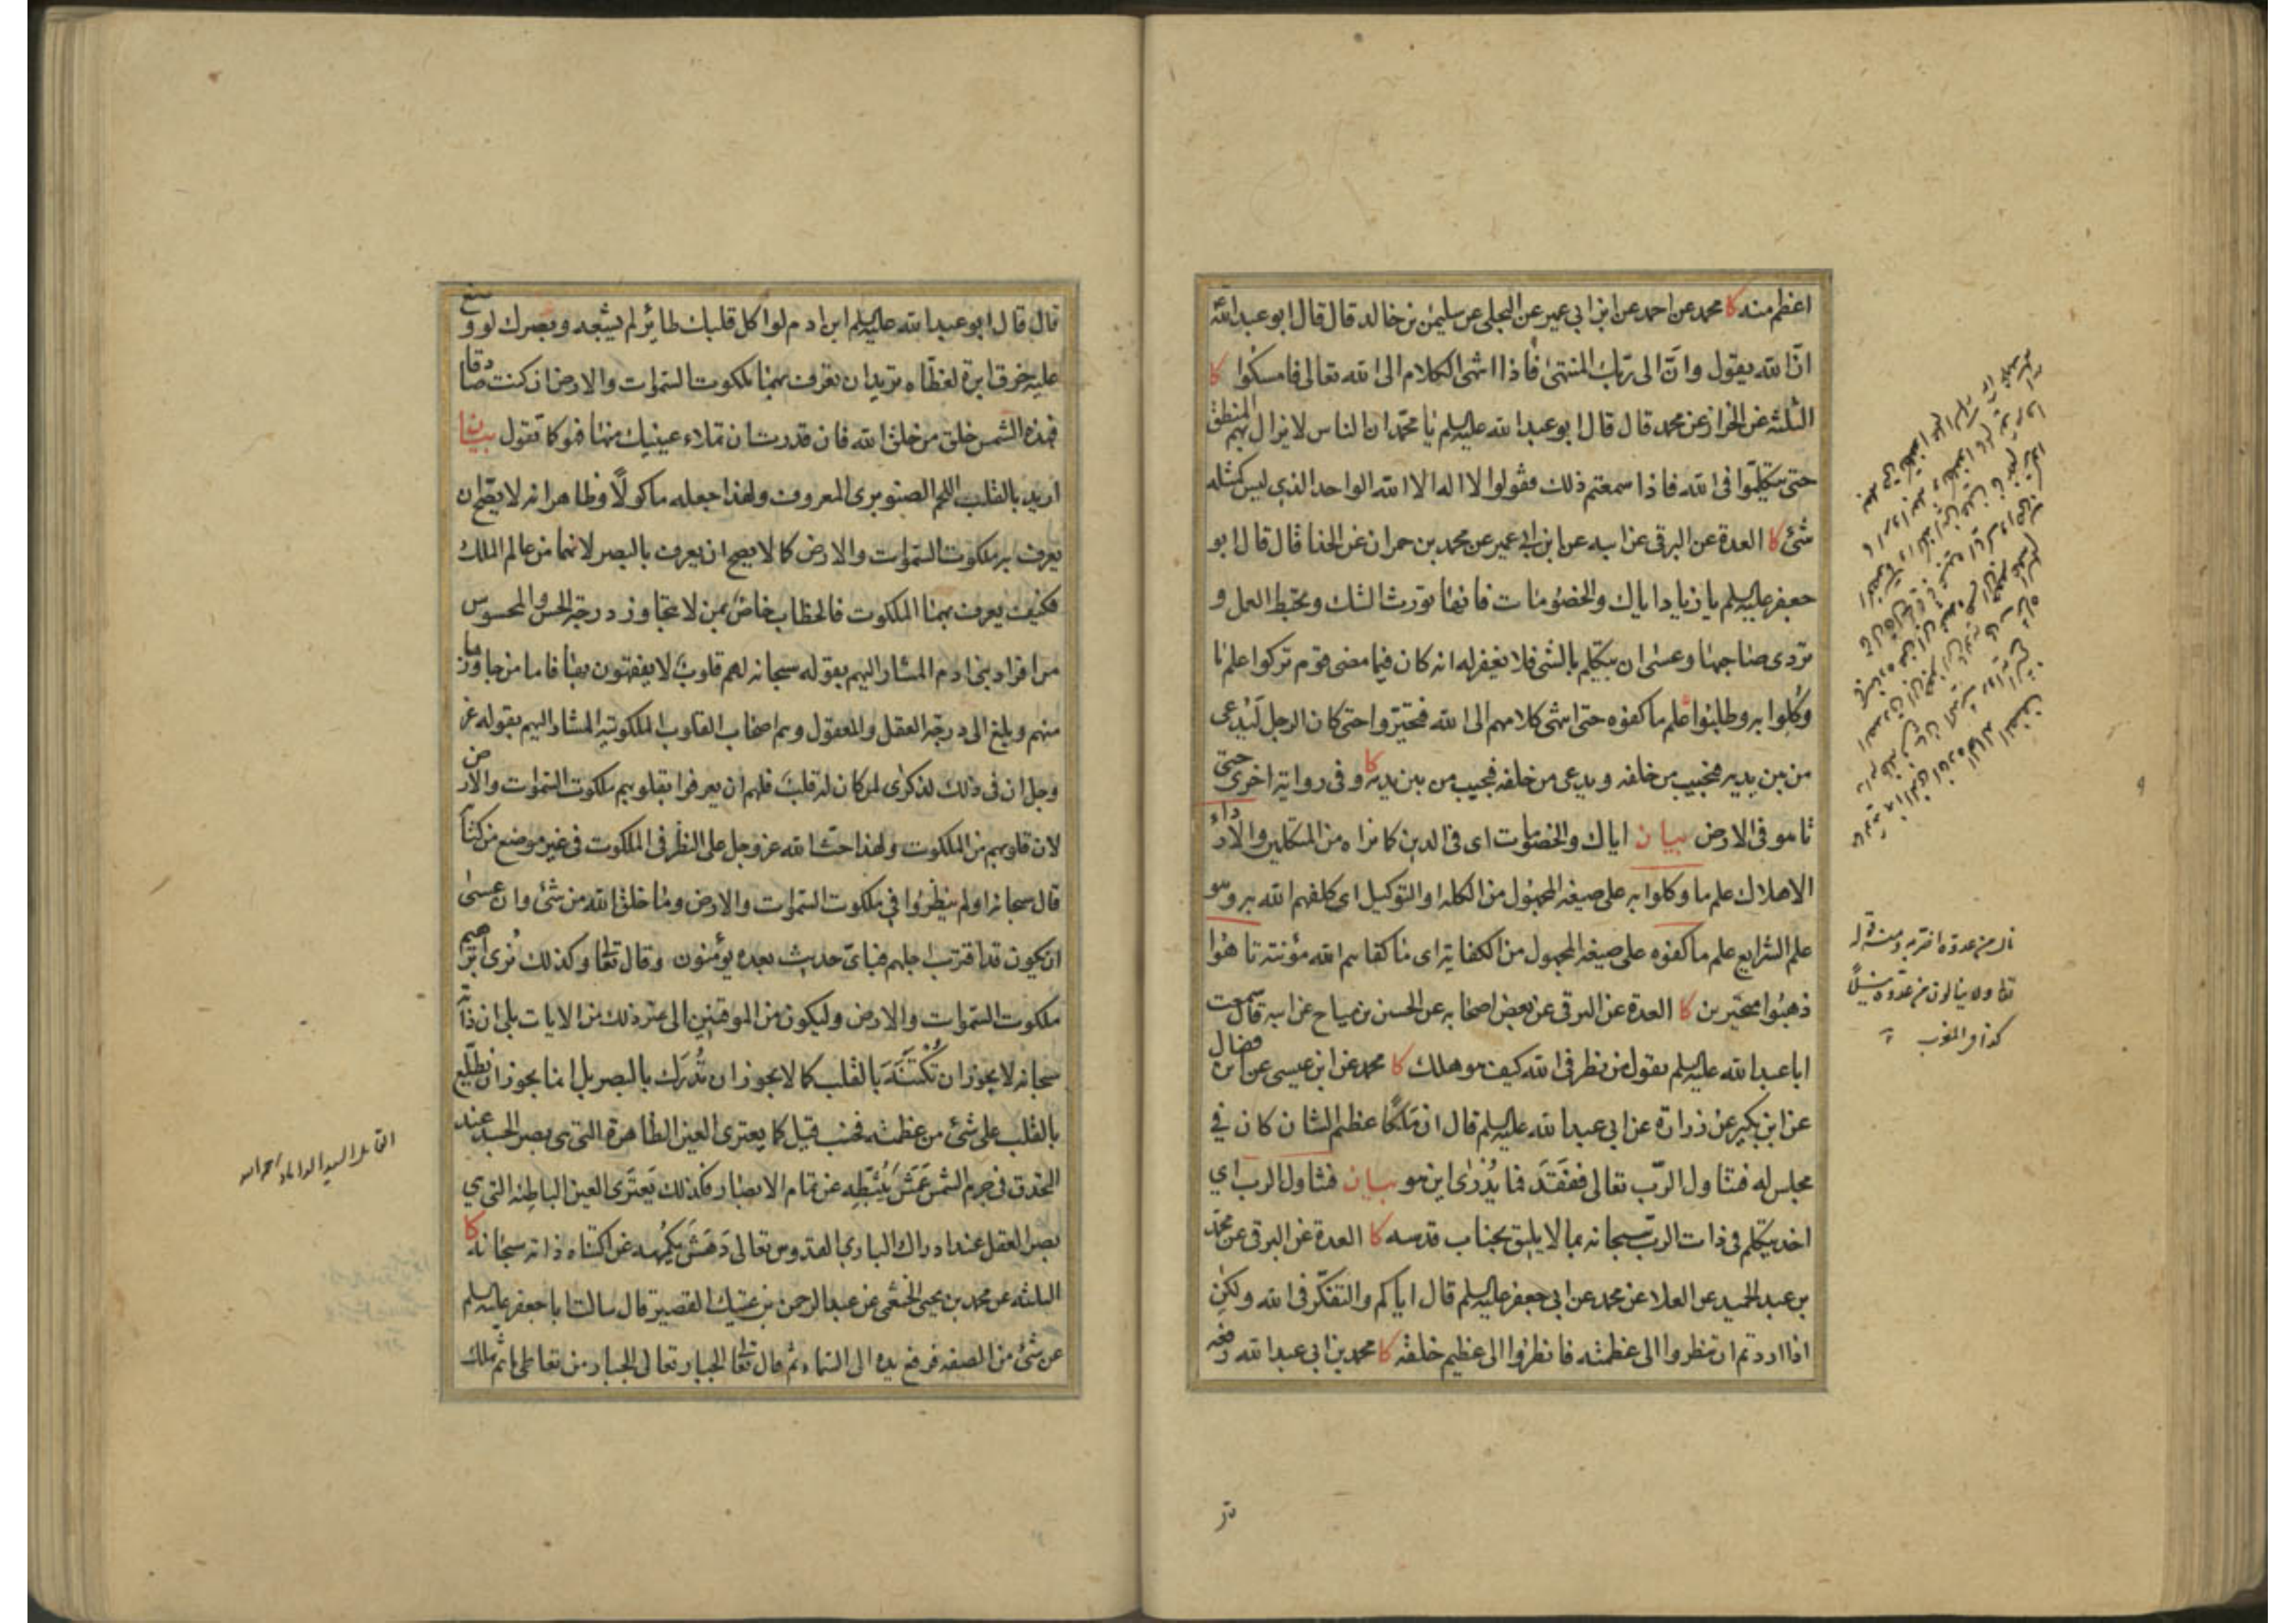 اعظم منه كا محمد عن احمد عن ابن ابى عمير عن البجلى عن سليمن بن خالد قال قال ابو عبد الله
ان الله يقول وانّ الى ربّك المنتهىٰ فاذا انتهى الكلام الى الله تعالى فامسكوا كا
الثلثة عن الخراز عن محمد قال قال ابو عبد الله عليه السلم يا محمد ان الناس لا يزال بهم المنطق
حتى يتكلّموا فى الله فاذا سمعتم ذلك فقولوا لا اله الا الله الواحد الذى ليس كمثله
شئ كا العدة عن البرقى عن ابيه عن ابن ابى عمير عن محمد بن حمران عن الحذا قال قال ابو
جعفر عليه السلم يا زياد اياك والخصومات فانها تورث الشك وتحبط العمل و
تردى صاحبها وعسى ان يتكلم بالشئ فلا يغفر له انه كان فيما مضى قوم تركوا علم ما
وُكلوا به وطلبوا علم ما كفوه حتى انتهى كلامهم الى الله فتحيّروا حتى كان الرجل لَيُدعى
من بين يديه فيجيب من خلفه ويدعى من خلفه فيجيب من بين يديه كا وفى رواية اخرى حتى
تاهوا فى الارض بيان اياك والخصومات اى فى الدين كما نراه من المتكلمين والارداء
الاهلاك علم ما وكلوا به على صيغة المجهول من الكلة او التوكيل اى كلفهم الله به وهو
علم الشرايع علم ما كفوه على صيغة المجهول من الكفاية اى ما كفاهم الله مؤنته تاهوا
ذهبوا متحيرين كا العدة عن البرقى عن بعض اصحابه عن الحسن بن مياح عن ابيه قال سمعت
ابا عبد الله عليه السلم يقول من نظر فى الله كيف هو هلك كا محمد عن ابن عيسى عن ابن فضال
عن ابن بكير عن زرارة عن ابى عبد الله عليه السلم قال ان مَلِكًا عظيم الشان كان فى
مجلس له فتناول الرّب تعالى ففُقِدَ فما يُدرىٰ اين هو بيان فتناول الرب اى
اخذ يتكلم فى ذات الربّ سبحانه بما لا يليق بجناب قدسه كا العدة عن البرقى عن محمد
بن عبد الحميد عن العلا عن محمد عن ابى جعفر عليه السلم قال اياكم والتفكّر فى الله ولكن
اذا اردتم ان تنظروا الى عظمته فانظروا الى عظيم خلقه كا محمد بن ابى عبد الله رفعه
نال من عدوه اضر به ومنه قوله
تعا ولا ينالون من عدوّ نيلًا
كذا فى المغرب
قال قال ابو عبد الله عليه السلم ابن ادم لو اكل قلبك طائر لم يشبعه وبصرك لو وضع
عليه خرق ابرة لغطّاه تريد ان تعرف بهما ملكوت السموات والارض ان كنت صادقا
فهذه الشمس خلق من خلق الله فان قدرت ان تملاء عينيك منها فهو كما تقول بيان
اريد بالقلب اللحم الصنوبرى المعروف ولهذا جعله ماكولًا وظاهر انه لا يصحّ ان
يعرف به ملكوت السموات والارض كما لا يصح ان يعرف بالبصر لانهما من عالم الملك
فكيف يعرف بهما الملكوت فالخطاب خاصّ بمن لا يتجاوز درجة الحس والمحسوس
من افراد بنى ادم المشار اليهم بقوله سبحانه لهم قلوب لا يفقهون بها فاما من جاوزها
منهم وبلغ الى درجة العقل والمعقول وهم اصحاب القلوب الملكوتية المشار اليهم بقوله عز
وجل ان فى ذلك لذكرى لمن كان له قلب فلهم ان يعرفوا بقلوبهم ملكوت السموات والارض
لان قلوبهم من الملكوت ولهذا حث الله عز وجل على النظر فى الملكوت فى غير موضع من كتابه
قال سبحانه اولم ينظروا فى ملكوت السموات والارض وما خلق الله من شئ وان عسىٰ
ان يكون قد اقترب اجلهم فباىّ حديث بعده يؤمنون وقال تعا وكذلك نُرى ابراهيم
ملكوت السموات والارض وليكون من الموقنين الى غير ذلك من الايات بلى ان ذاته
سبحانه لا يجوز ان تُكتَنَهَ بالقلب كما لا يجوز ان تُدرَك بالبصر بل انما يجوز ان يطّلع
بالقلب على شئ من عظمته فحسب قيل كما يعترى العين الظاهرة التى هى بصر الجسد عند
التحدق فى جرم الشمس عَمَش يُثبّطه عن تمام الابصار فكذلك يَعترى العين الباطنة التى هى
بصر العقل عند ادراك البارى القدوس تعالى دَهَش يكمهه عن اكتناه ذاته سبحانه كا
الثلثة عن محمد بن يحيى الخثعمى عن عبد الرحمن بن عتيك القصير قال سالت ابا جعفر عليه السلم
عن شئ من الصفة فرفع يده الى السماء ثم قال تعا الجبار تعالى الجبار من تعاطى ما ثم هلك
القائل السيد الداماد رحمه الله